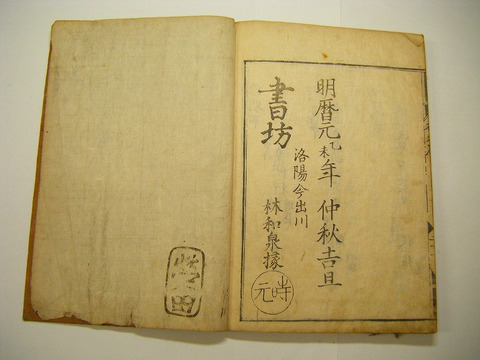 明暦元乙未年 仲秋吉旦
洛陽今出川
書坊 林和泉掾
時元